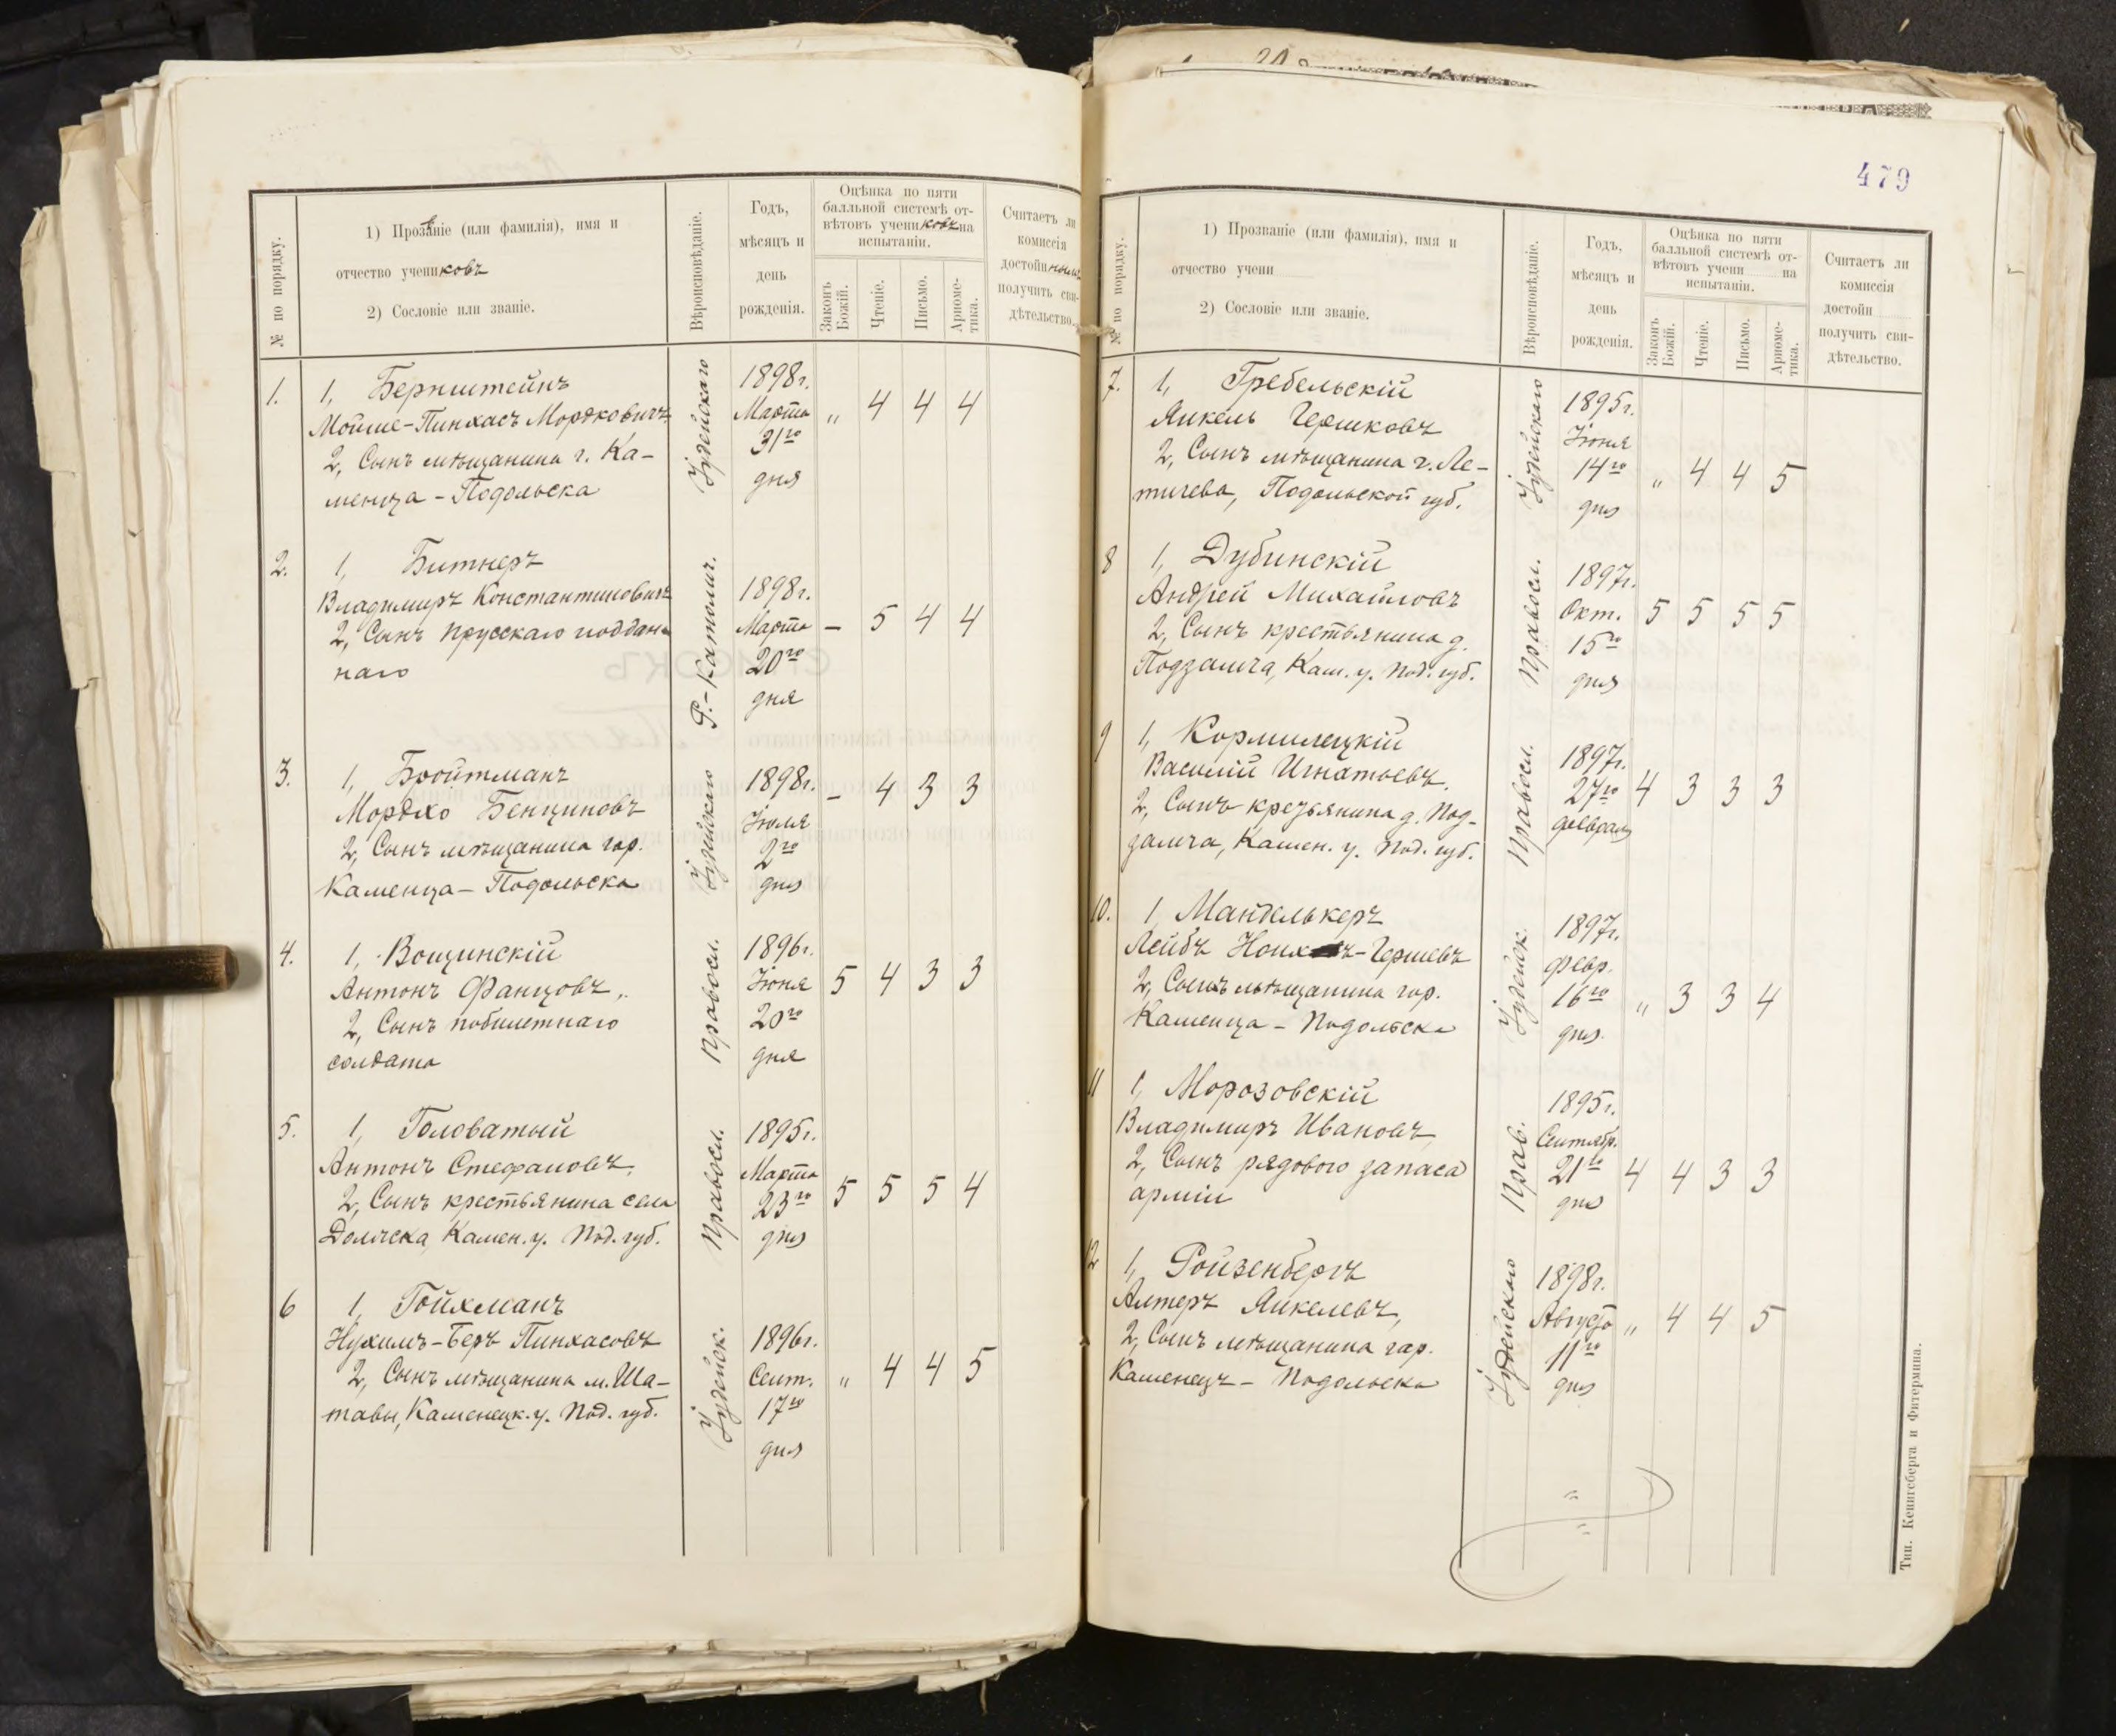 № по порядку.
1) Прозваніе (или фамилія), имя и
отчество учениковъ
2) Сословіе или званіе.
Вѣроисповѣданіе.
Годъ,
мѣсяцъ и
день
рожденія.
Оцѣнка по пяти
балльной системѣ от-
вѣтовъ учениковъ на
испытаніи.
Законъ
Божій.
Чтеніе.
Письмо.
Ариѳме-
тика.
Считаетъ ли
комиссія
достойными
получить сви-
дѣтельство.
1.
1, Бернштейнъ
Мойше-Пинхасъ Мордковичъ
2, Сынъ мѣщанина г. Ка-
менца-Подольска
Іудейскаго
1898г.
Марта
31го
дня
„ 4 4 4
2.
1, Битнеръ
Владимиръ Константиновичъ
2, Сынъ прусскаго поддан-
наго
Р.-Католич.
1898г.
Марта
20го
дня
– 5 4 4
3.
1, Бройтманъ
Мордхо Бенционовъ
2, Сынъ мѣщанина гор.
Каменца-Подольска
Іудейскаго
1898г.
Іюля
2го
дня
– 4 3 3
4.
1, Вощинскій
Антонъ Францовъ,
2, Сынъ побилетнаго
солдата
Правосл.
1896г.
Іюня
20го
дня
5 4 3 3
5.
1, Головатый
Антонъ Стефановъ,
2, Сынъ крестьянина села
Должска, Камен. у. Под. губ.
Правосл.
1895г.
Марта
23го
дня
5 5 5 4
6
1, Гойхманъ
Нухимъ-Беръ Пинхасовъ
2, Сынъ мѣщанина м. Ша-
тавы, Каменецк. у. Под. губ.
Іудейск.
1896г.
Сент.
17го
дня
„ 4 4 5
479
№ по порядку.
1) Прозваніе (или фамилія), имя и
отчество учени
2) Сословіе или званіе.
Вѣроисповѣданіе.
Годъ,
мѣсяцъ и
день
рожденія.
Оцѣнка по пяти
балльной системѣ от-
вѣтовъ учени на
испытаніи.
Законъ
Божій.
Чтеніе.
Письмо.
Ариѳме-
тика.
Считаетъ ли
комиссія
достойн
получить сви-
дѣтельство.
7.
1, Гребельскій
Янкель Гершковъ
2, Сынъ мѣщанина г. Ле-
тичева, Подольской губ.
Іудейскаго
1895г.
Іюня
14го
дня
„ 4 4 5
8
1, Дубинскій
Андрей Михайловъ
2, Сынъ крестьянина д.
Подзамча, Кам. у. Под. губ.
Правосл.
1897г.
Окт.
15го
дня
5 5 5 5
9
1, Кормилецкій
Василій Игнатьевъ.
2, Сынъ крестьянина д. Под-
замча, Камен. у. Под. губ.
Правосл.
1897г.
27го
февраля
4 3 3 3
10.
1, Манделькеръ
Лейбъ -Гершевъ
2, Сынъ мѣщанина гор.
Каменца-Подольска
Іудейск.
1897г.
Февр.
16го
дня.
„ 3 3 4
11
1, Морозовскій
Владимиръ Ивановъ
2, Сынъ рядового запаса
арміи
Прав.
1895г.
Сентябр.
21го
дня
4 4 3 3
12
1, Ройзенбергъ
Алтеръ Янкелевъ,
2, Сынъ мѣщанина гор.
Каменецъ-Подольска
Іудейскаго
1898г.
Августа
11го
дня
„ 4 4 5
Тип. Кенигсберга и Фитермана.